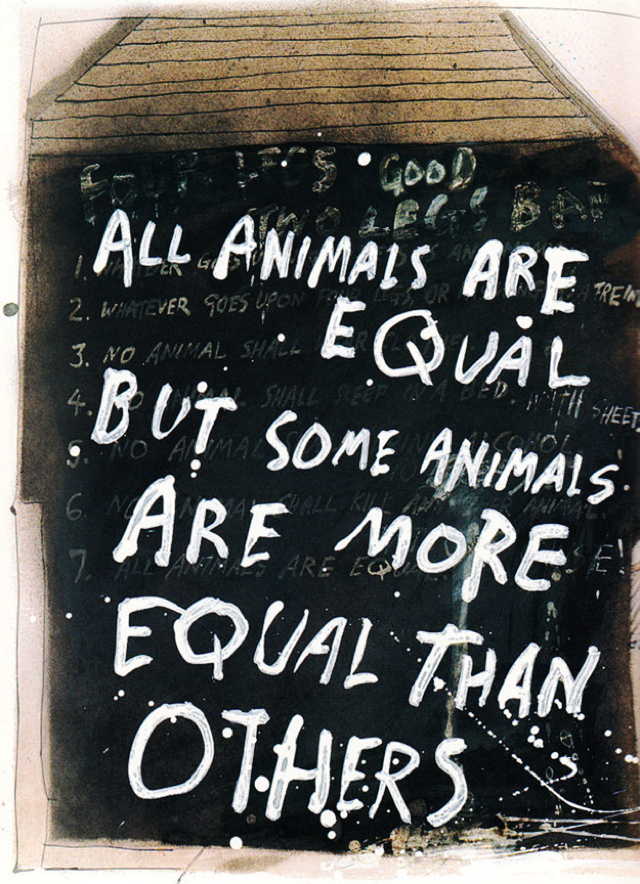 FOUR LEGS GOOD
TWO LEGS BAD
ALL ANIMALS ARE
EQUAL
BUT SOME ANIMALS
ARE MORE
EQUAL THAN
OTHERS
1. WHATEVER GOES
2. WHATEVER GOES UPON FOUR LEGS, OR
3. NO ANIMAL SHALL
4. NO ANIMAL SHALL SLEEP IN A BED. WITH SHEETS
5. NO ANIMAL ALCOHOL
6. NO ANIMAL SHALL KILL ANY ANIMAL.
7. ALL ANIMALS ARE EQUAL.